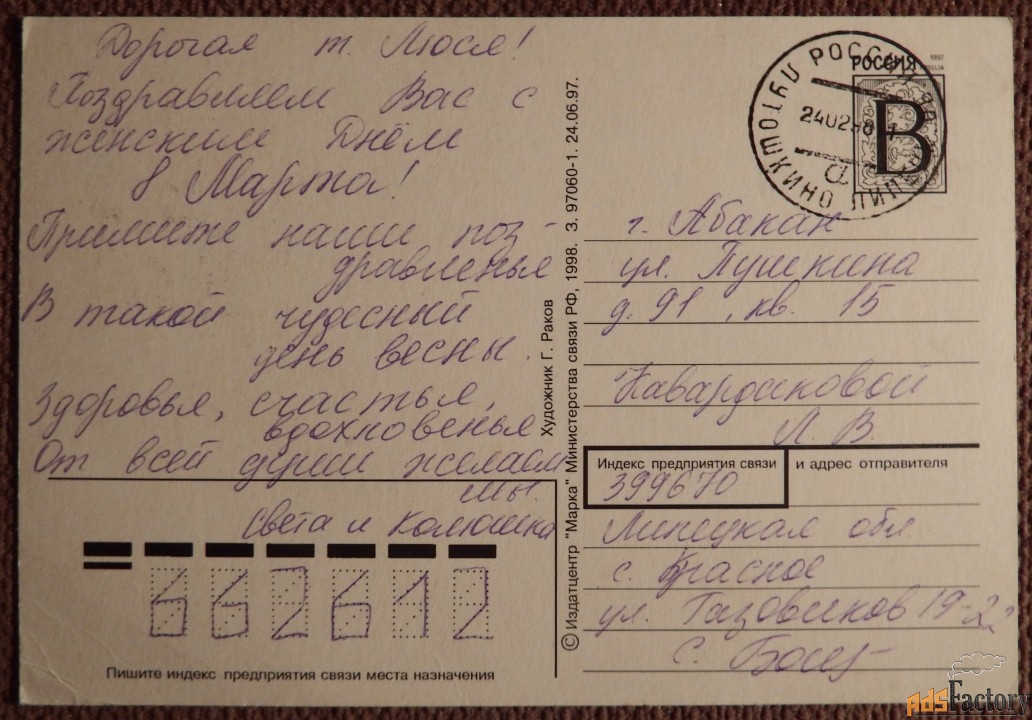 Дорогая т. Люся!
Поздравляем Вас с
женским Днём
8 Марта!
Примите наши поз-
дравленья
В такой чудесный
день весны.
Здоровья, счастья,
вдохновенья
От всей души желаем
мы.
Света и Колюшка
662612
Пишите индекс предприятия связи места назначения
© Издатцентр "Марка" Министерства связи РФ, 1998. З. 97060-1. 24.06.97.
Художник Г. Раков
РОССИЯ
1997
ROSSIJA
B
РОССИЯ
ЛИПЕЦК
г. Абакан
ул. Пушкина
д. 91, кв. 15
Кавардаковой
Л. В.
Индекс предприятия связи и адрес отправителя
399670
Липецкая обл.
с. Красное
ул. Газовиков 19-22
с.
AdsFactory